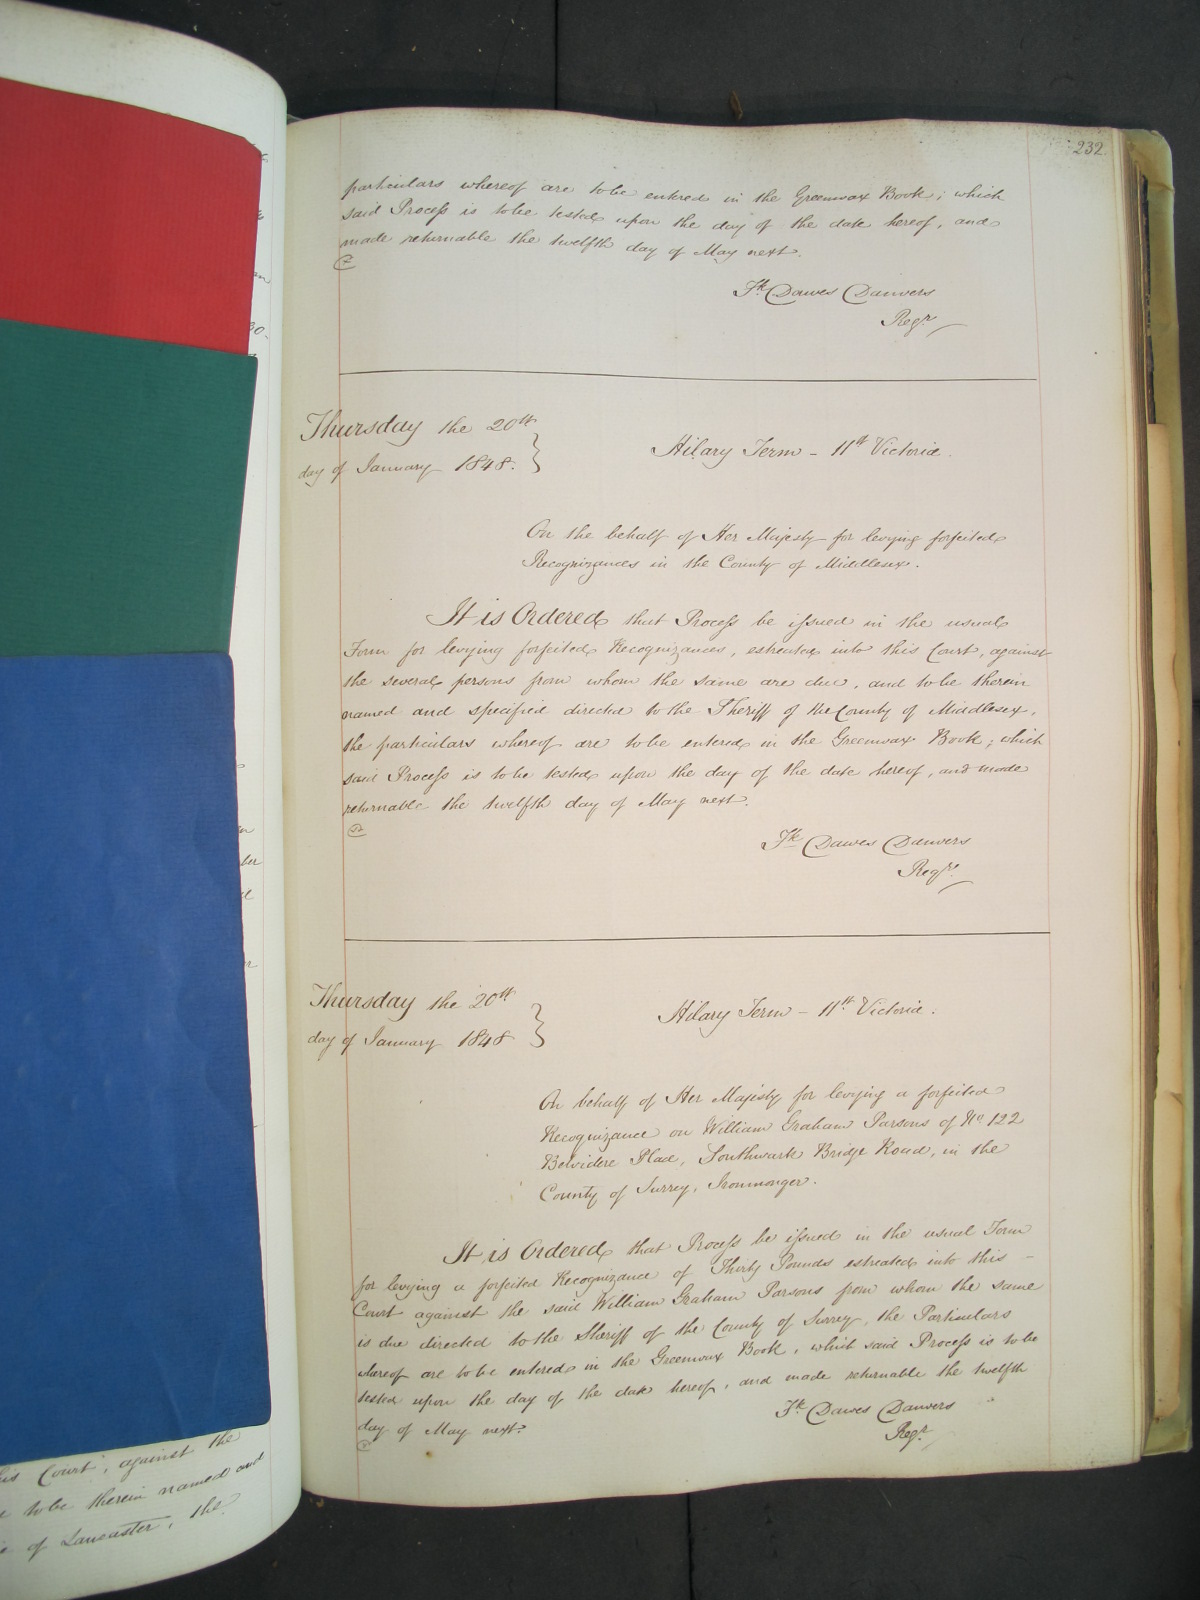 232
particulars whereof are to be entered in the Greenwax Book; which
said Process is to be tested upon the day of the date hereof, and
made returnable the twelfth day of May next.
Fk Dawes Danvers
Regr
Thursday the 20th
day of January 1848.
Hilary Term - 11th Victoria.
On the behalf of Her Majesty for levying forfeited
Recognizances in the County of Middlesex.
It is Ordered that Process be issued in the usual
Form for levying forfeited Recognizances, estreated into this Court, against
the several persons from whom the same are due, and to be therein
named and specified directed to the Sheriff of the County of Middlesex,
the particulars whereof are to be entered in the Greenwax Book; which
said Process is to be tested upon the day of the date hereof, and made
returnable the twelfth day of May next.
Fk Dawes Danvers
Regr.
Thursday the 20th
day of January 1848
Hilary Term - 11th Victoria.
On behalf of Her Majesty for levying a forfeited
Recognizance on William Graham Parsons of No 122
Belvidere Place, Southwark Bridge Road, in the
County of Surrey, Ironmonger.
It is Ordered that Process be issued in the usual Form
for levying a forfeited Recognizance of Thirty Pounds estreated into this -
Court against the said William Graham Parsons from whom the same
is due directed to the Sheriff of the County of Surrey, the Particulars
whereof are to be entered in the Greenwax Book, which said Process is to be
tested upon the day of the date hereof, and made returnable the twelfth
day of May next.
Fk Dawes Danvers
Regr.
Court, against the
to be therein named and
of Lancaster, the